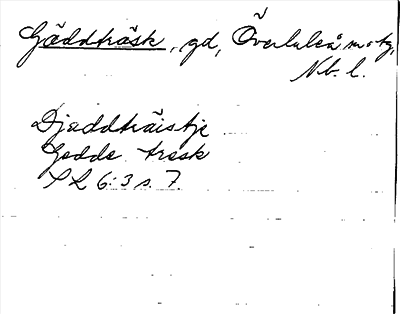 Gäddträsk, gd, Överluleå m. tg,
Nb. l.
Djäddträistje
Gedde tresk
SL 6:3 s. 7.